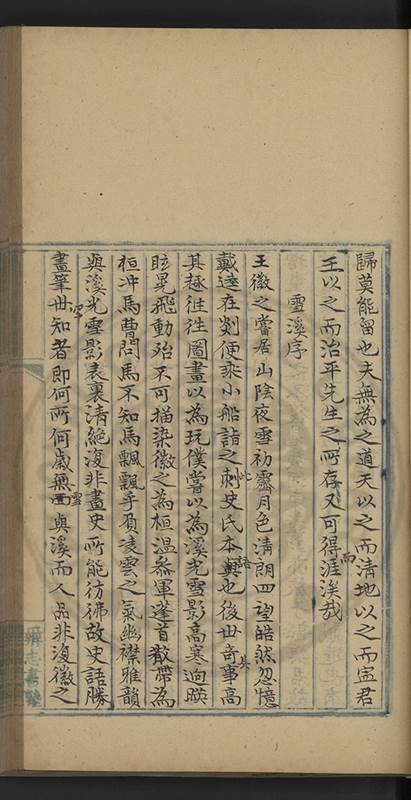 歸莫能留也夫無為之道天以之而清地以之而寍君
王以之而治平先生之所存又可得而涯涘哉
雪溪序
王徽之嘗居山陰夜雪初霽月色清朗四望皓然忽憶
戴逵在剡便乘小船詣之此刺史氏本語與也後世奇事高
其趣徃徃圖畫以為玩僕嘗以為溪光雪影高寒迥暎
眩晃飛動殆不可描染徽之為桓溫叅軍蓬首散帶為
桓冲馬曹問馬不知馬飄飄乎負凌雲之氣幽襟雅韻
與溪光雪影表裏清絶復非畫史所能彷彿故史語勝
畫筆世知者即何所何嵗無雪與溪而人品非復徽之